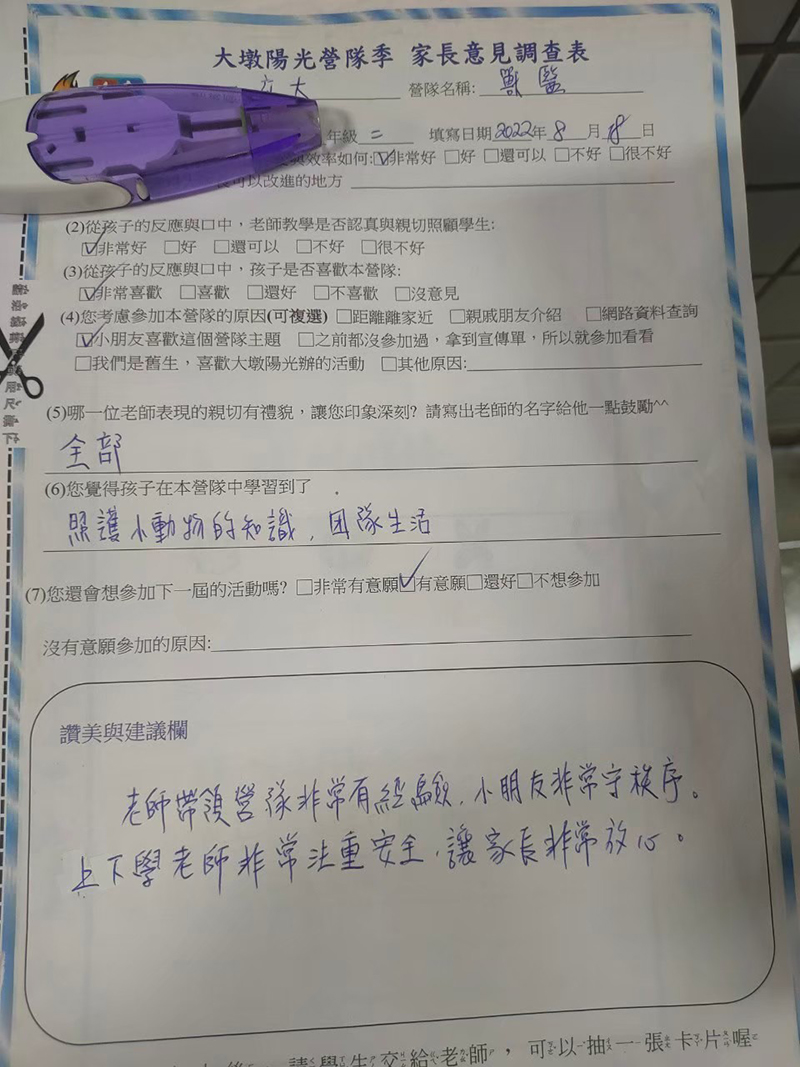 大墩陽光營隊季 家長意見調查表
營隊名稱: 獸醫
年級 二 填寫日期2022年 8 月 18 日
效率如何:☑非常好 □好 □還可以 □不好 □很不好
可以改進的地方
(2)從孩子的反應與口中，老師教學是否認真與親切照顧學生:
☑非常好 □好 □還可以 □不好 □很不好
(3)從孩子的反應與口中，孩子是否喜歡本營隊:
☑非常喜歡 □喜歡 □還好 □不喜歡 □沒意見
(4)您考慮參加本營隊的原因(可複選) □距離離家近 □親戚朋友介紹 □網路資料查詢
☑小朋友喜歡這個營隊主題 □之前都沒參加過，拿到宣傳單，所以就參加看看
□我們是舊生，喜歡大墩陽光辦的活動 □其他原因:
(5)哪一位老師表現的親切有禮貌，讓您印象深刻? 請寫出老師的名字給他一點鼓勵^^
全部
(6)您覺得孩子在本營隊中學習到了
照護小動物的知識，团隊生活
(7)您還會想參加下一屆的活動嗎? □非常有意願☑有意願□還好□不想參加
沒有意願參加的原因:
讚美與建議欄
老師帶領營隊非常有經驗，小朋友非常守秩序。
上下學老師非常注重安全，讓家長非常放心。
請學生交給老師，可以抽一張卡片喔